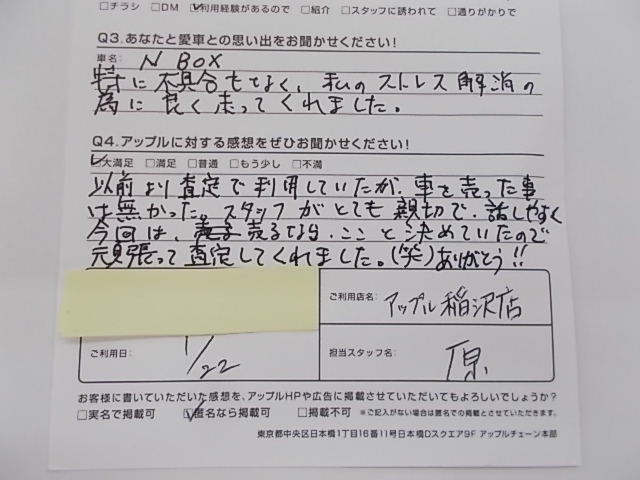 □チラシ □DM ☑利用経験があるので □紹介 □スタッフに誘われて □通りがかりで
Q3.あなたと愛車との思い出をお聞かせください!
車名: N BOX
特に不具合もなく、私のストレス解消の
為に良く走ってくれました。
Q4.アップルに対する感想をぜひお聞かせください!
☑大満足 □満足 □普通 □もう少し □不満
以前より査定で利用していたが、車を売った事
は無かった。スタッフがとても親切で、話しやすく
今回は、売るなら、ここと決めていたので
頑張って査定してくれました。(笑)ありがとう!!
ご利用店名: アップル稲沢店
ご利用日: 1/22
担当スタッフ名: 原
お客様に書いていただいた感想を、アップルHPや広告に掲載させていただいてもよろしいでしょうか?
□実名で掲載可 ☑匿名なら掲載可 □掲載不可 ※ご記入がない場合は匿名での掲載とさせていただきます。
東京都中央区日本橋1丁目16番11号日本橋Dスクエア9F アップルチェーン本部